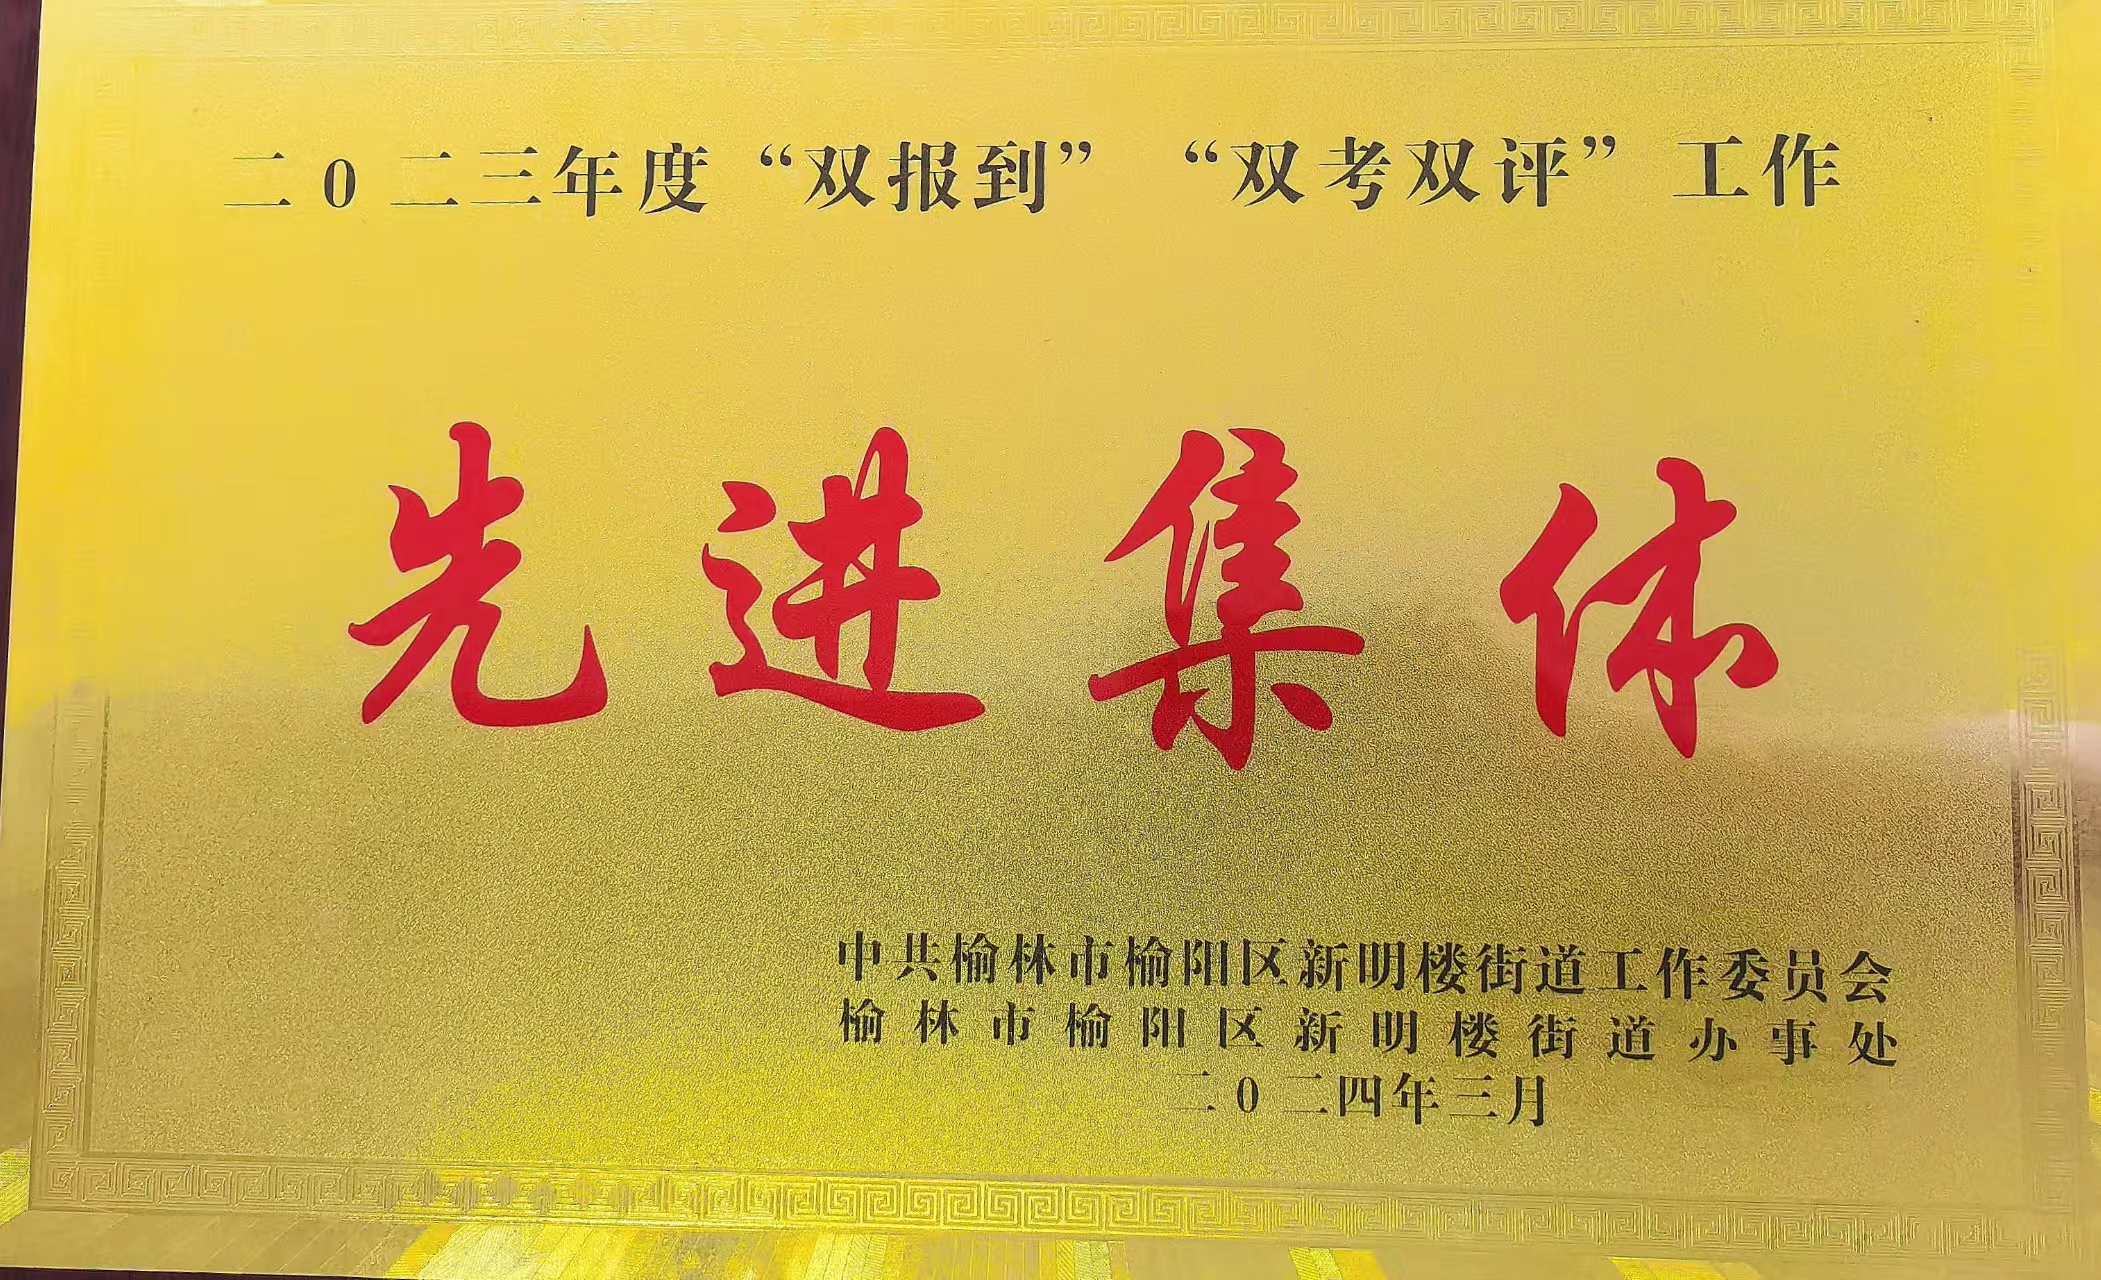 二0二三年度“双报到”“双考双评”工作
先进集体
中共榆林市榆阳区新明楼街道工作委员会
榆林市榆阳区新明楼街道办事处
二0二四年三月